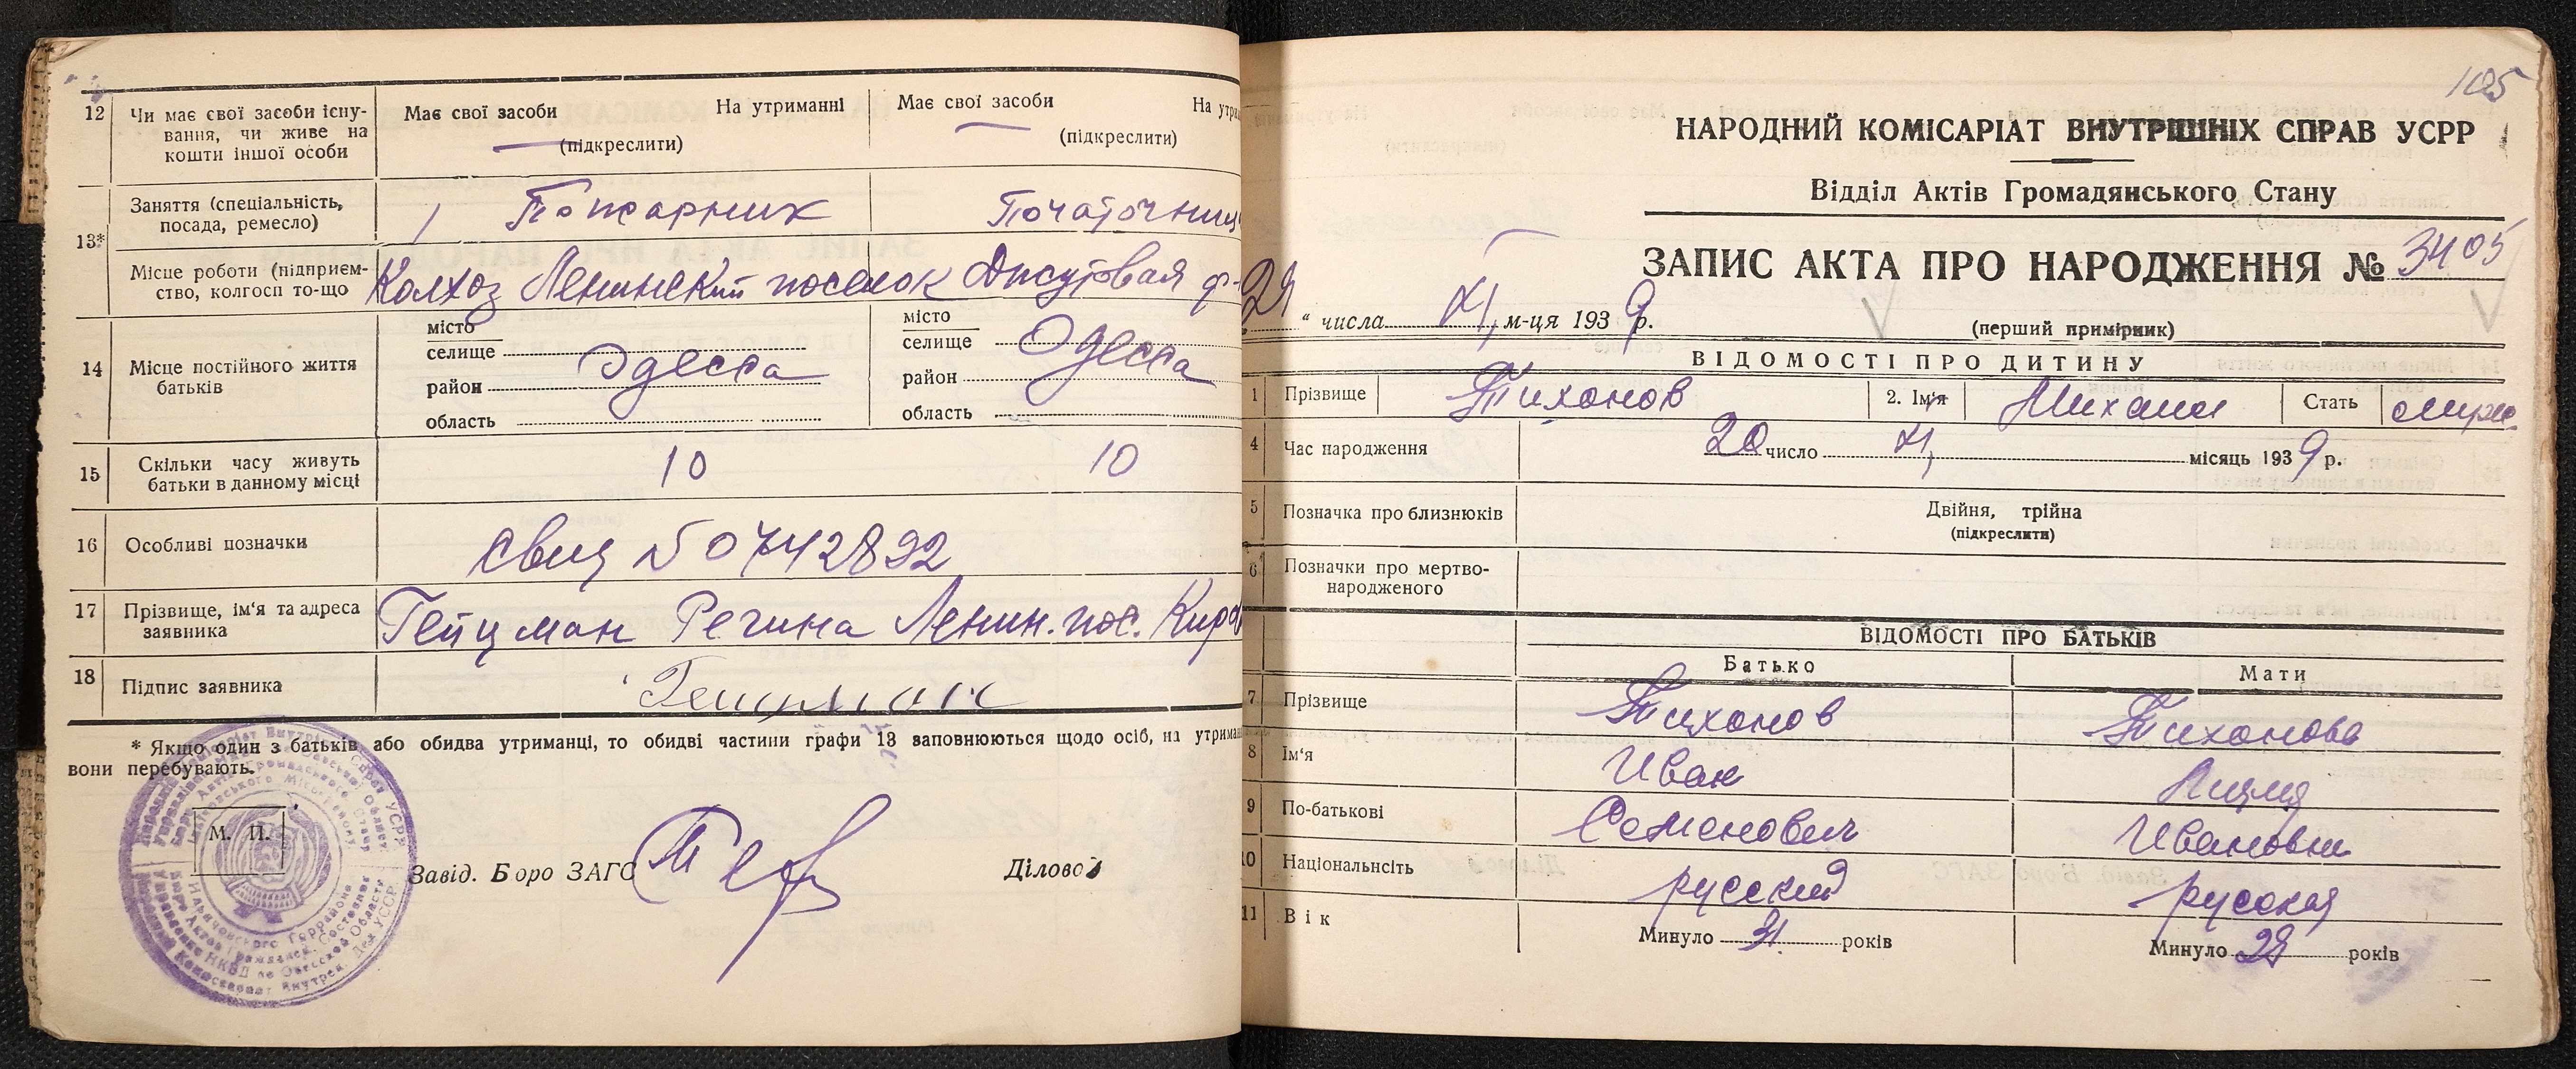 12 Чи має свої засоби існу-
вання, чи живе на
кошти іншої особи
Має свої засоби На утриманні
(підкреслити)
Має свої засоби На утри
(підкреслити)
13* Заняття (спеціальність,
посада, ремесло)
Пожарник Початочниц
Місце роботи (підприєм-
ство, колгосп то-що
Колхоз Ленинский поселок Джутовая ф-
14 Місце постійного життя
батьків
місто
селище
район
область
Одесса
місто
селище
район
область
Одесса
15 Скільки часу живуть
батьки в данному місці
10 10
16 Особливі позначки
Свид №0742892
17 Прізвище, ім'я та адреса
заявника
Гейцман Регина Ленин. пос. Киро
18 Підпис заявника
Гейцман
* Якщо один з батьків або обидва утриманці, то обидві частини графи 13 заповнюються щодо осіб, на утриман
вони перебувають.
М. П.
Завід. Боро ЗАГС
Діловод
105
НАРОДНИЙ КОМІСАРІАТ ВНУТРІШНІХ СПРАВ УСРР
Відділ Актів Громадянського Стану
ЗАПИС АКТА ПРО НАРОДЖЕННЯ № 3405
" числа XI, м-ця 1939 р.
(перший примірник)
ВІДОМОСТІ ПРО ДИТИНУ
1 Прізвище Тихонов 2. Ім'я Михаил Стать муж.
4 Час народження 20 число XI, місяць 1939 р.
5 Позначка про близнюків Двійня, трійна
(підкреслити)
6 Позначки про мертво-
народженого
ВІДОМОСТІ ПРО БАТЬКІВ
Батько Мати
7 Прізвище Тихонов Тихонова
8 Ім'я Иван Лидия
9 По-батькові Семенович Ивановна
10 Національнсіть русский русская
11 Вік Минуло 31 років Минуло 28 років